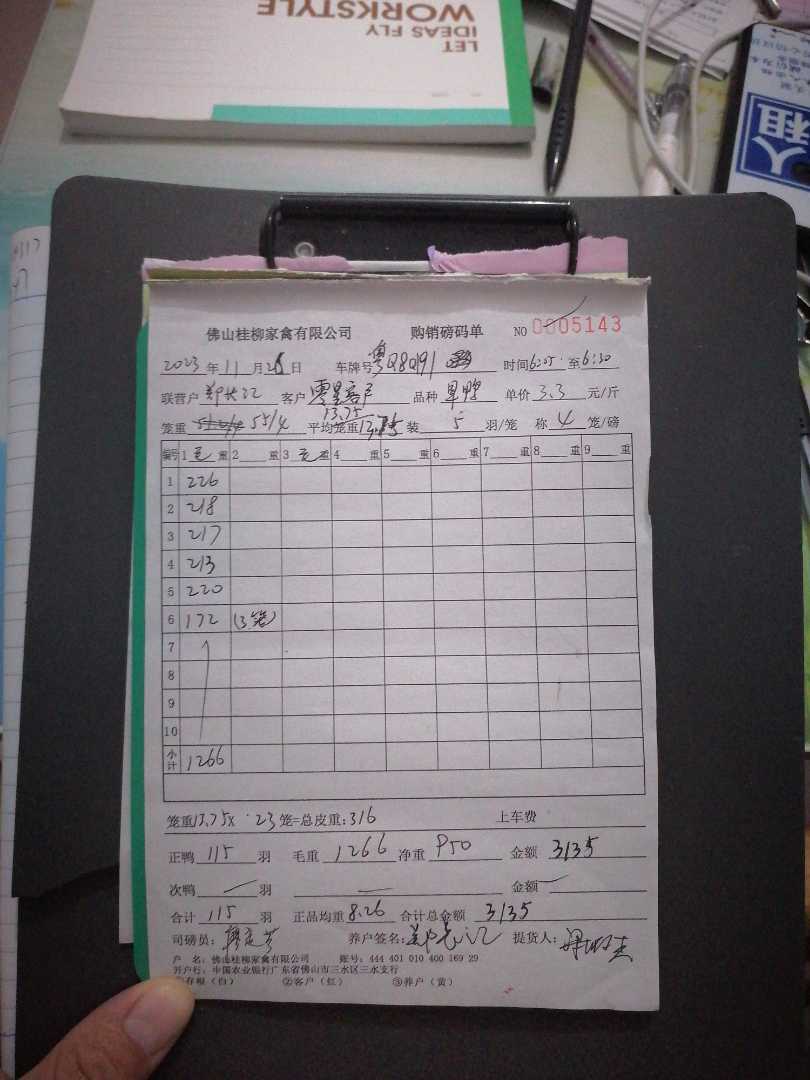 LET
IDEAS FLY
WORKSTYLE
租
佛山桂柳家禽有限公司 购销磅码单 NO 0005143
2023 年 11 月 26 日 车牌号 粤Q8Q91 时间 6:05 至 6:30
联营户 客户 零星客户 品种 单价 3.3 元/斤
13.75
笼重 55/4 平均笼重 13.75 装 5 羽/笼 称 4 笼/磅
编号 1 毛 重 2 重 3 毛 重 4 重 5 重 6 重 7 重 8 重 9 重
1 226
2 218
3 217
4 213
5 220
6 172 (3笼)
7
8
9
10
小计 1266
笼重 13.75 x 23 笼=总皮重: 316 上车费
正鸭 115 羽 毛重 1266 净重 950 金额 3135
次鸭 羽 金额
合计 115 羽 正品均重 8.26 合计总金额 3135
司磅员: 养户签名: 提货人:
户 名: 佛山桂柳家禽有限公司 账号: 444 401 010 400 169 29
开户行: 中国农业银行广东省佛山市三水区三水支行
①存根(白) ②客户(红) ③养户(黄)